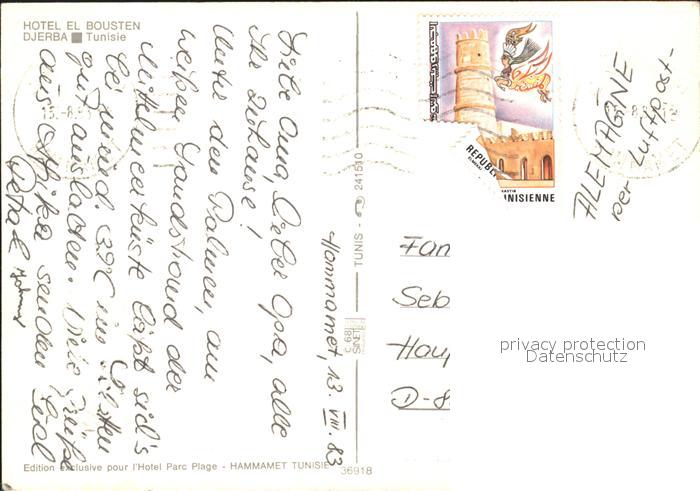 HOTEL EL BOUSTEN
DJERBA ■ Tunisie
Hammamet, 13. VIII. 83
Liebe Oma, lieber Opa, alle
Ihr Zuhause!
Unter den Palmen, am
weißen Sandstrand der
Mittelmeerküste läßt sich's
bei rund 39°C im Schatten
gut aushalten. Viele Grüße
aus Afrika senden Euch
TUNIS - 241510
C 68
SINET
REPUBL
TUNISIENNE
ALLEMAGNE
per Luftpost-
Fam
Seb
Hau
D-8
privacy protection
Datenschutz
Edition exclusive pour l'Hotel Parc Plage - HAMMAMET TUNISIE
36918